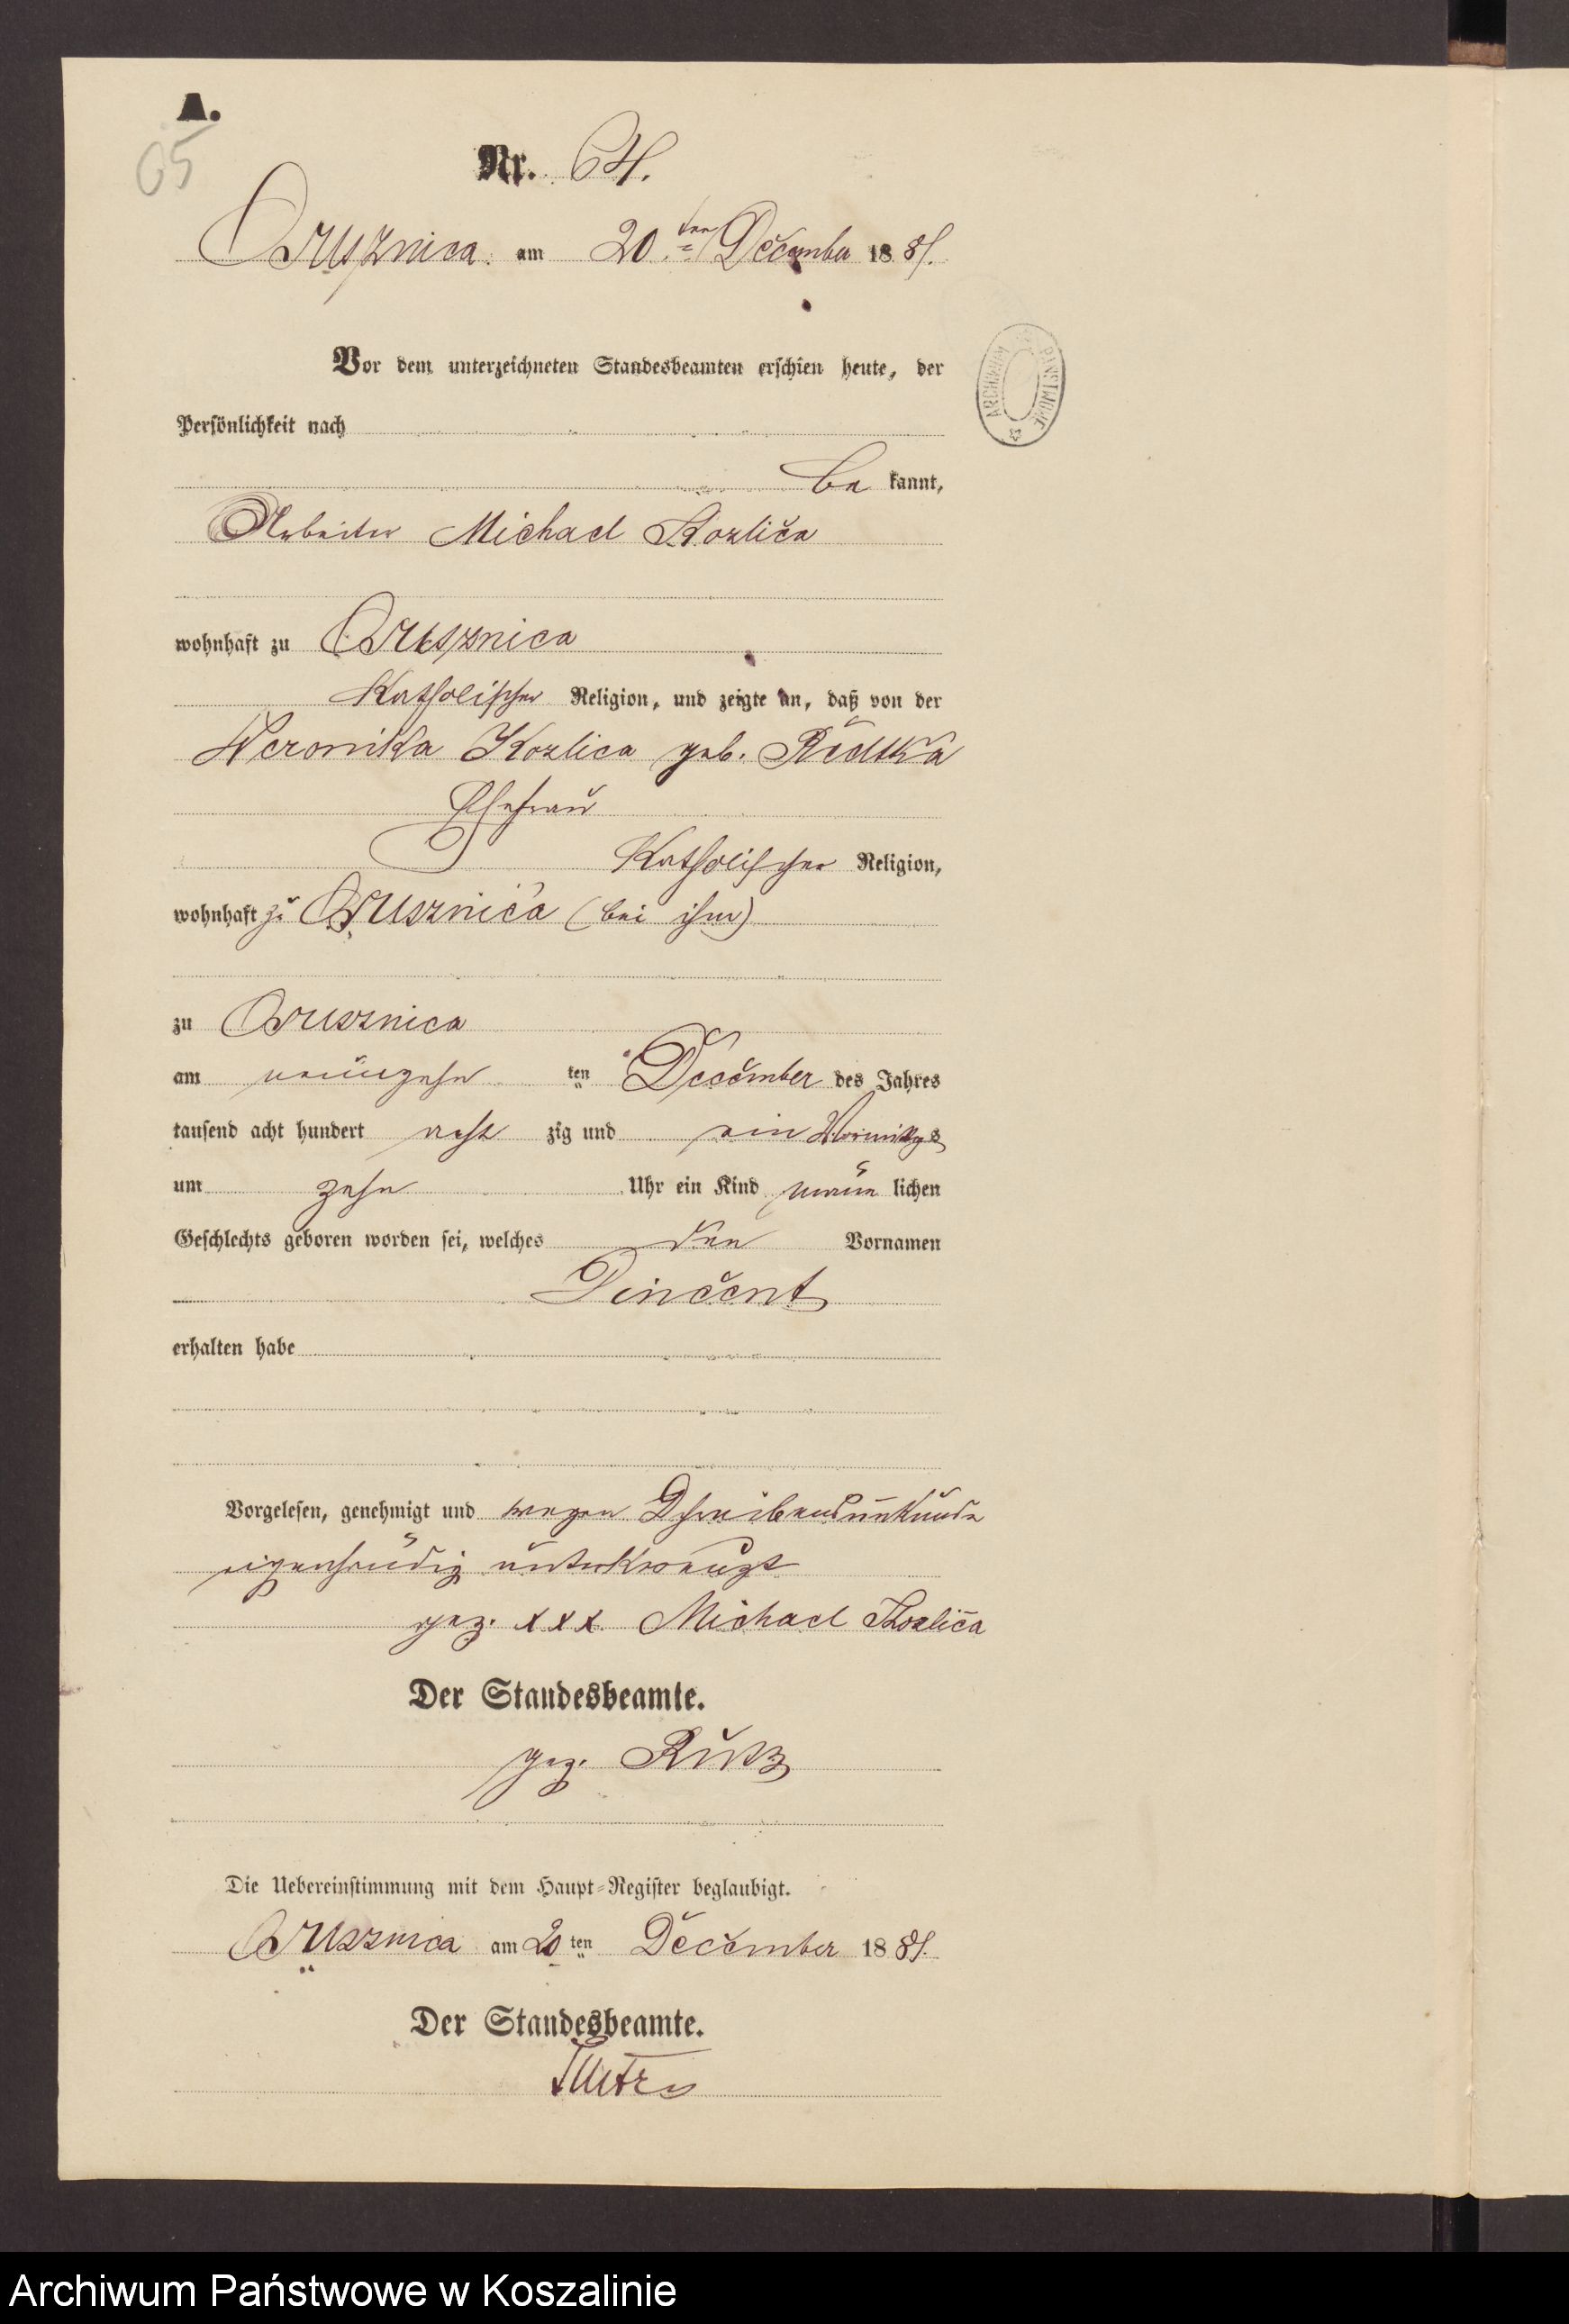 A.
65
Nr. 64.
Orusznica am 20ten December 1881.
Vor dem unterzeichneten Standesbeamten erschien heute, der
Persönlichkeit nach
be kannt,
Arbeiter Michael Kozlica
wohnhaft zu Orusznica
Katholischer Religion, und zeigte an, daß von der
Weronika Kozlica geb.
Ehefrau
Katholischer Religion,
wohnhaft zu Orusznica (bei ihm)
zu Orusznica
am neunzehn ten December des Jahres
tausend acht hundert acht zig und ein Vormittags
um zehn Uhr ein Kind männ lichen
Geschlechts geboren worden sei, welches den Vornamen
Vincent
erhalten habe
Vorgelesen, genehmigt und wegen Schreibensunkunde
eigenhändig unterkreuzt
gez. xxx Michael Kozlica
Der Standesbeamte.
gez.
Die Uebereinstimmung mit dem Haupt-Register beglaubigt.
Orusznica am 20 ten December 1881.
Der Standesbeamte.
ARCHIWUM PAŃSTWOWE
Archiwum Państwowe w Koszalinie